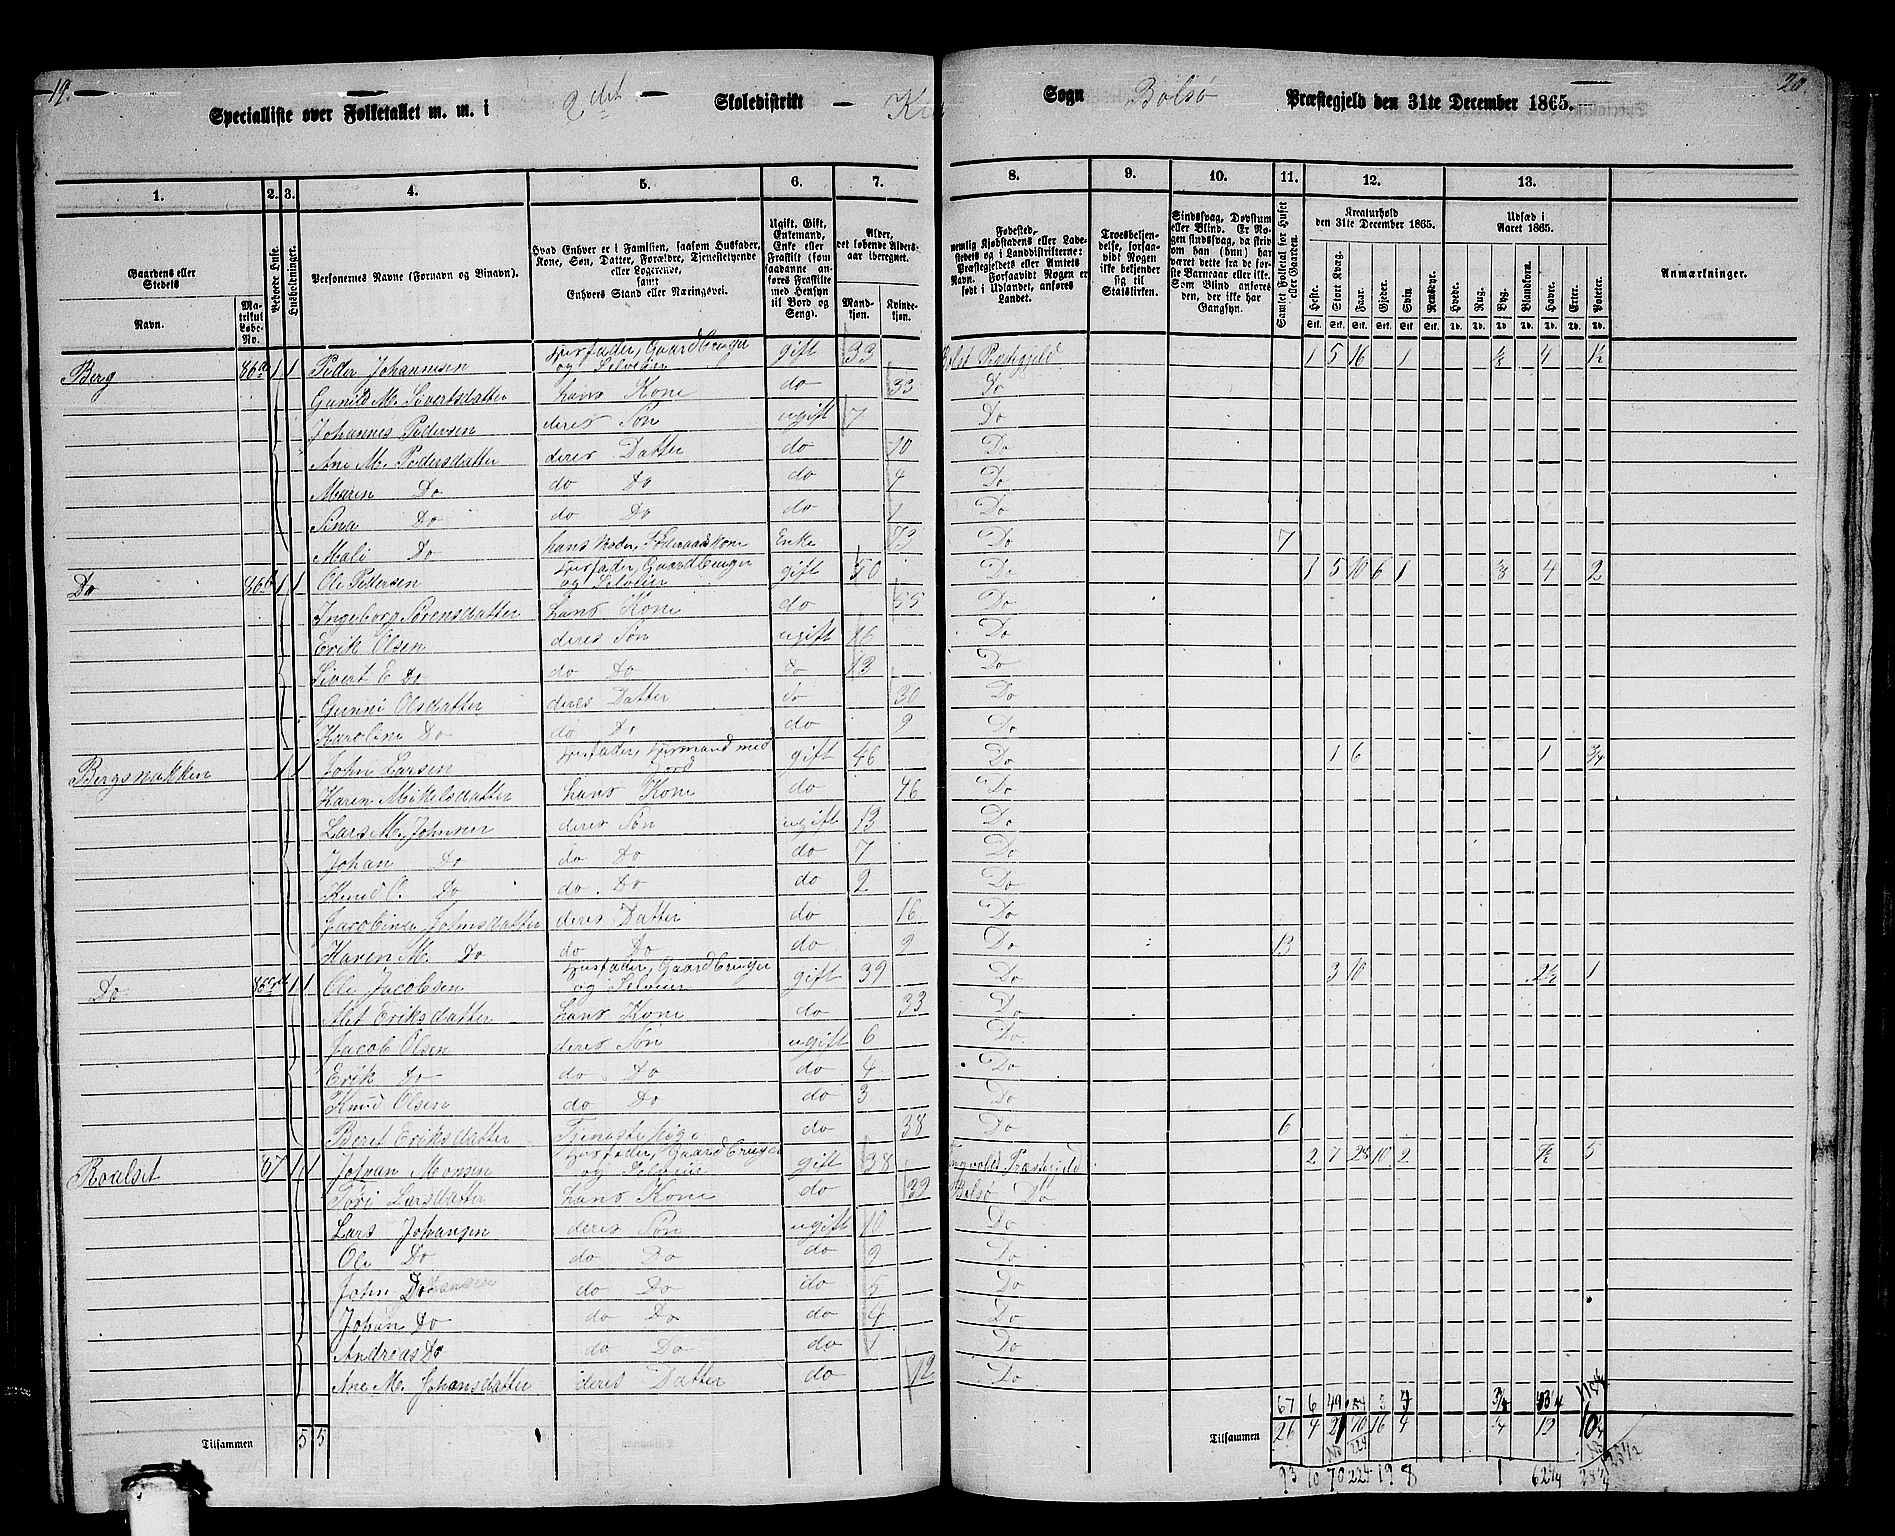 19.
20
Specialliste over Folketallet m. m. i 2det Skoledistrikt
Sogn Bolsø Præstegjeld den 31te December 1865.
1. 2. 3. 4. 5. 6. 7. 8. 9. 10. 11. 12. 13.
Gaardens eller Stedets
Navn.
Matrikul Løbe-No.
Beboede Huse.
Husholdninger.
Personernes Navne (Fornavn og Tilnavn).
Hvad Enhver er i Familien, saasom Husfader, Kone, Søn, Datter, Forældre, Tjenestetyende eller Logerende, samt Enhvers Stand eller Næringsvei.
Ugift, Gift, Enkemand, Enke eller Fraskilt (som saadanne anføres Fraskilte med Hensyn til Bord og Seng).
Alder, det løbende Aldersaar iberegnet.
Mandkjøn. Kvindekjøn.
Fødested, nemlig Kjøbstadens eller Ladestedets og i Landdistrikterne: Præstegjeldets eller Amtets Navn. Forsaavidt Nogen er født i Udlandet, anføres Landet.
Troesbekjendelse, forsaavidt Nogen ikke bekjender sig til Statskirken.
Sindssvag, Døvstum eller Blind. Er Nogen sindssvag, da skrives om han (hun) har været dette fra de første Barneaar eller ikke. Som Blind anføres den, der ikke har Gangsyn.
Samlet Folketal for Huset eller Gaarden.
Kreaturhold den 31te December 1865.
Heste. Stort Kvæg. Faar. Gjeder. Svin. Rensdyr.
Udsæd i Aaret 1865.
Hvede. Rug. Byg. Blandkorn. Havre. Erter. Poteter.
Anmærkninger.
Berg 86a 1 1 Peder Johannesen Husfader, Gaardbruger og Selveier gift 33 Bolsø Præstegjeld 1 5 16 1 4 1½
Gunild M. Sivertsdatter hans Kone do 33 Do
Johannes Pedersen deres Søn ugift 7 Do
Ane M. Pedersdatter deres Datter do 10 Do
Maren Do do Do do 4 Do
Sina Do do Do do 1 Do
Mali Do hans Moder, Føderaadskone Enke 73 Do 7
Do 86b 1 1 Ole Pedersen Husfader, Gaardbruger og Selveier gift 50 Do 1 5 10 6 1 4 2
Ingeborg Sørensdatter hans Kone do 55 Do
Erik Olsen deres Søn ugift 16 Do
Sivert E Do do Do do 13 Do
Gunni Olsdatter deres Datter do 30 Do
Karoline Do do Do do 9 Do
Bergsnakken 1 1 John Larsen Husfader, Husmand med Jord gift 46 Do 1 6 1 ¾
Karen Mikelsdatter hans Kone do 46 Do
Lars M. Johnsen deres Søn ugift 13 Do
Johan Do do Do do 7 Do
Knud O. Do do Do do 2 Do
Jacobina Johnsdatter deres Datter do 16 Do
Karen M. Do do Do do 9 Do 13
Do 1 1 Ole Jacobsen Husfader, Gaardbruger og Selveier gift 39 Do 3 10 2½ 1
Alet Eriksdatter hans Kone do 33 Do
Jacob Olsen deres Søn ugift 6 Do
Erik Do do Do do 4 Do
Knud Olsen do Do do 3 Do
Beret Eriksdatter Tjenestepige do 38 Do 6
Roalset 87 1 1 Johan Monsen Husfader, Gaardbruger og Selveier gift 38 Tingvolds Præstegjeld 2 7 28 10 2 7½ 5
Søri Larsdatter hans Kone do 32 Bolsø Do
Lars Johansen deres Søn ugift 10 Do
Ole Do do Do do 9 Do
John Do do Do do 5 Do
Johan Do do Do do 4 Do
Andreas Do do Do do 1 Do
Ane M. Johansdatter deres Datter do 12 Do
67 6 49 154 3 4
Tilsammen 5 5
Tilsammen 26 4 21 70 16 4 19
93 10 70 224 19 8 1 62¼